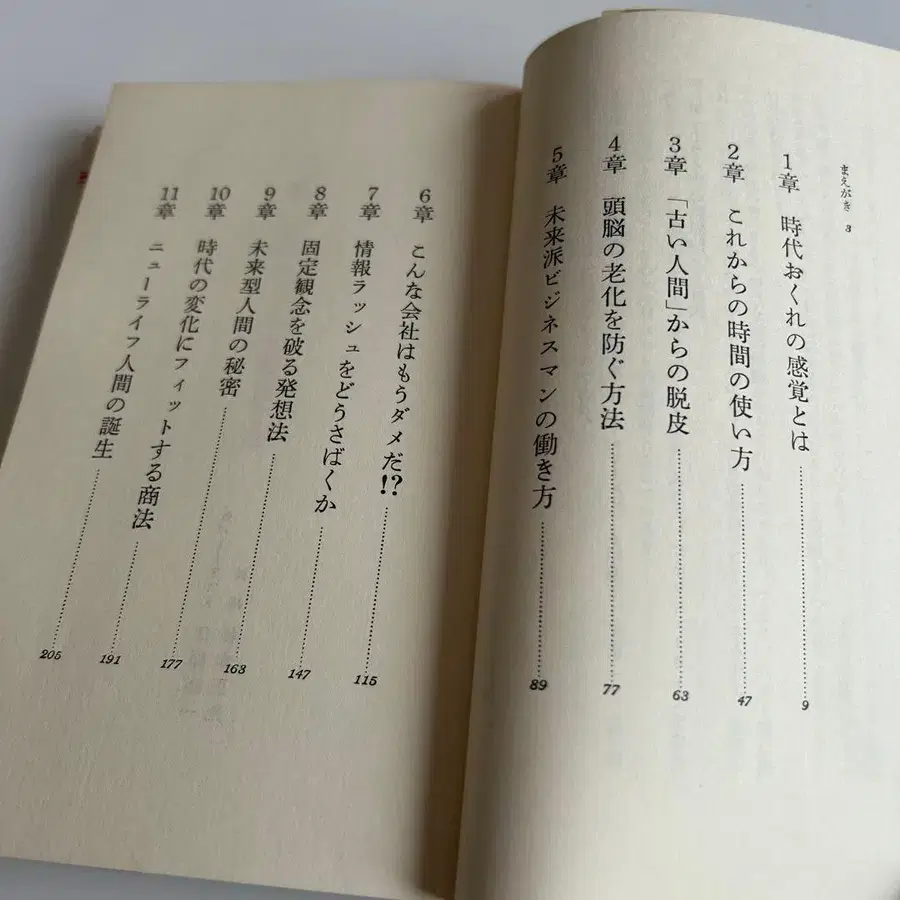 まえがき 3
1章 時代おくれの感覚とは 9
2章 これからの時間の使い方 47
3章 「古い人間」からの脱皮 63
4章 頭脳の老化を防ぐ方法 77
5章 未来派ビジネスマンの働き方 89
6章 こんな会社はもうダメだ!? 115
7章 情報ラッシュをどうさばくか 147
8章 固定観念を破る発想法 163
9章 未来型人間の秘密 177
10章 時代の変化にフィットする商法 191
11章 ニューライフ人間の誕生 205